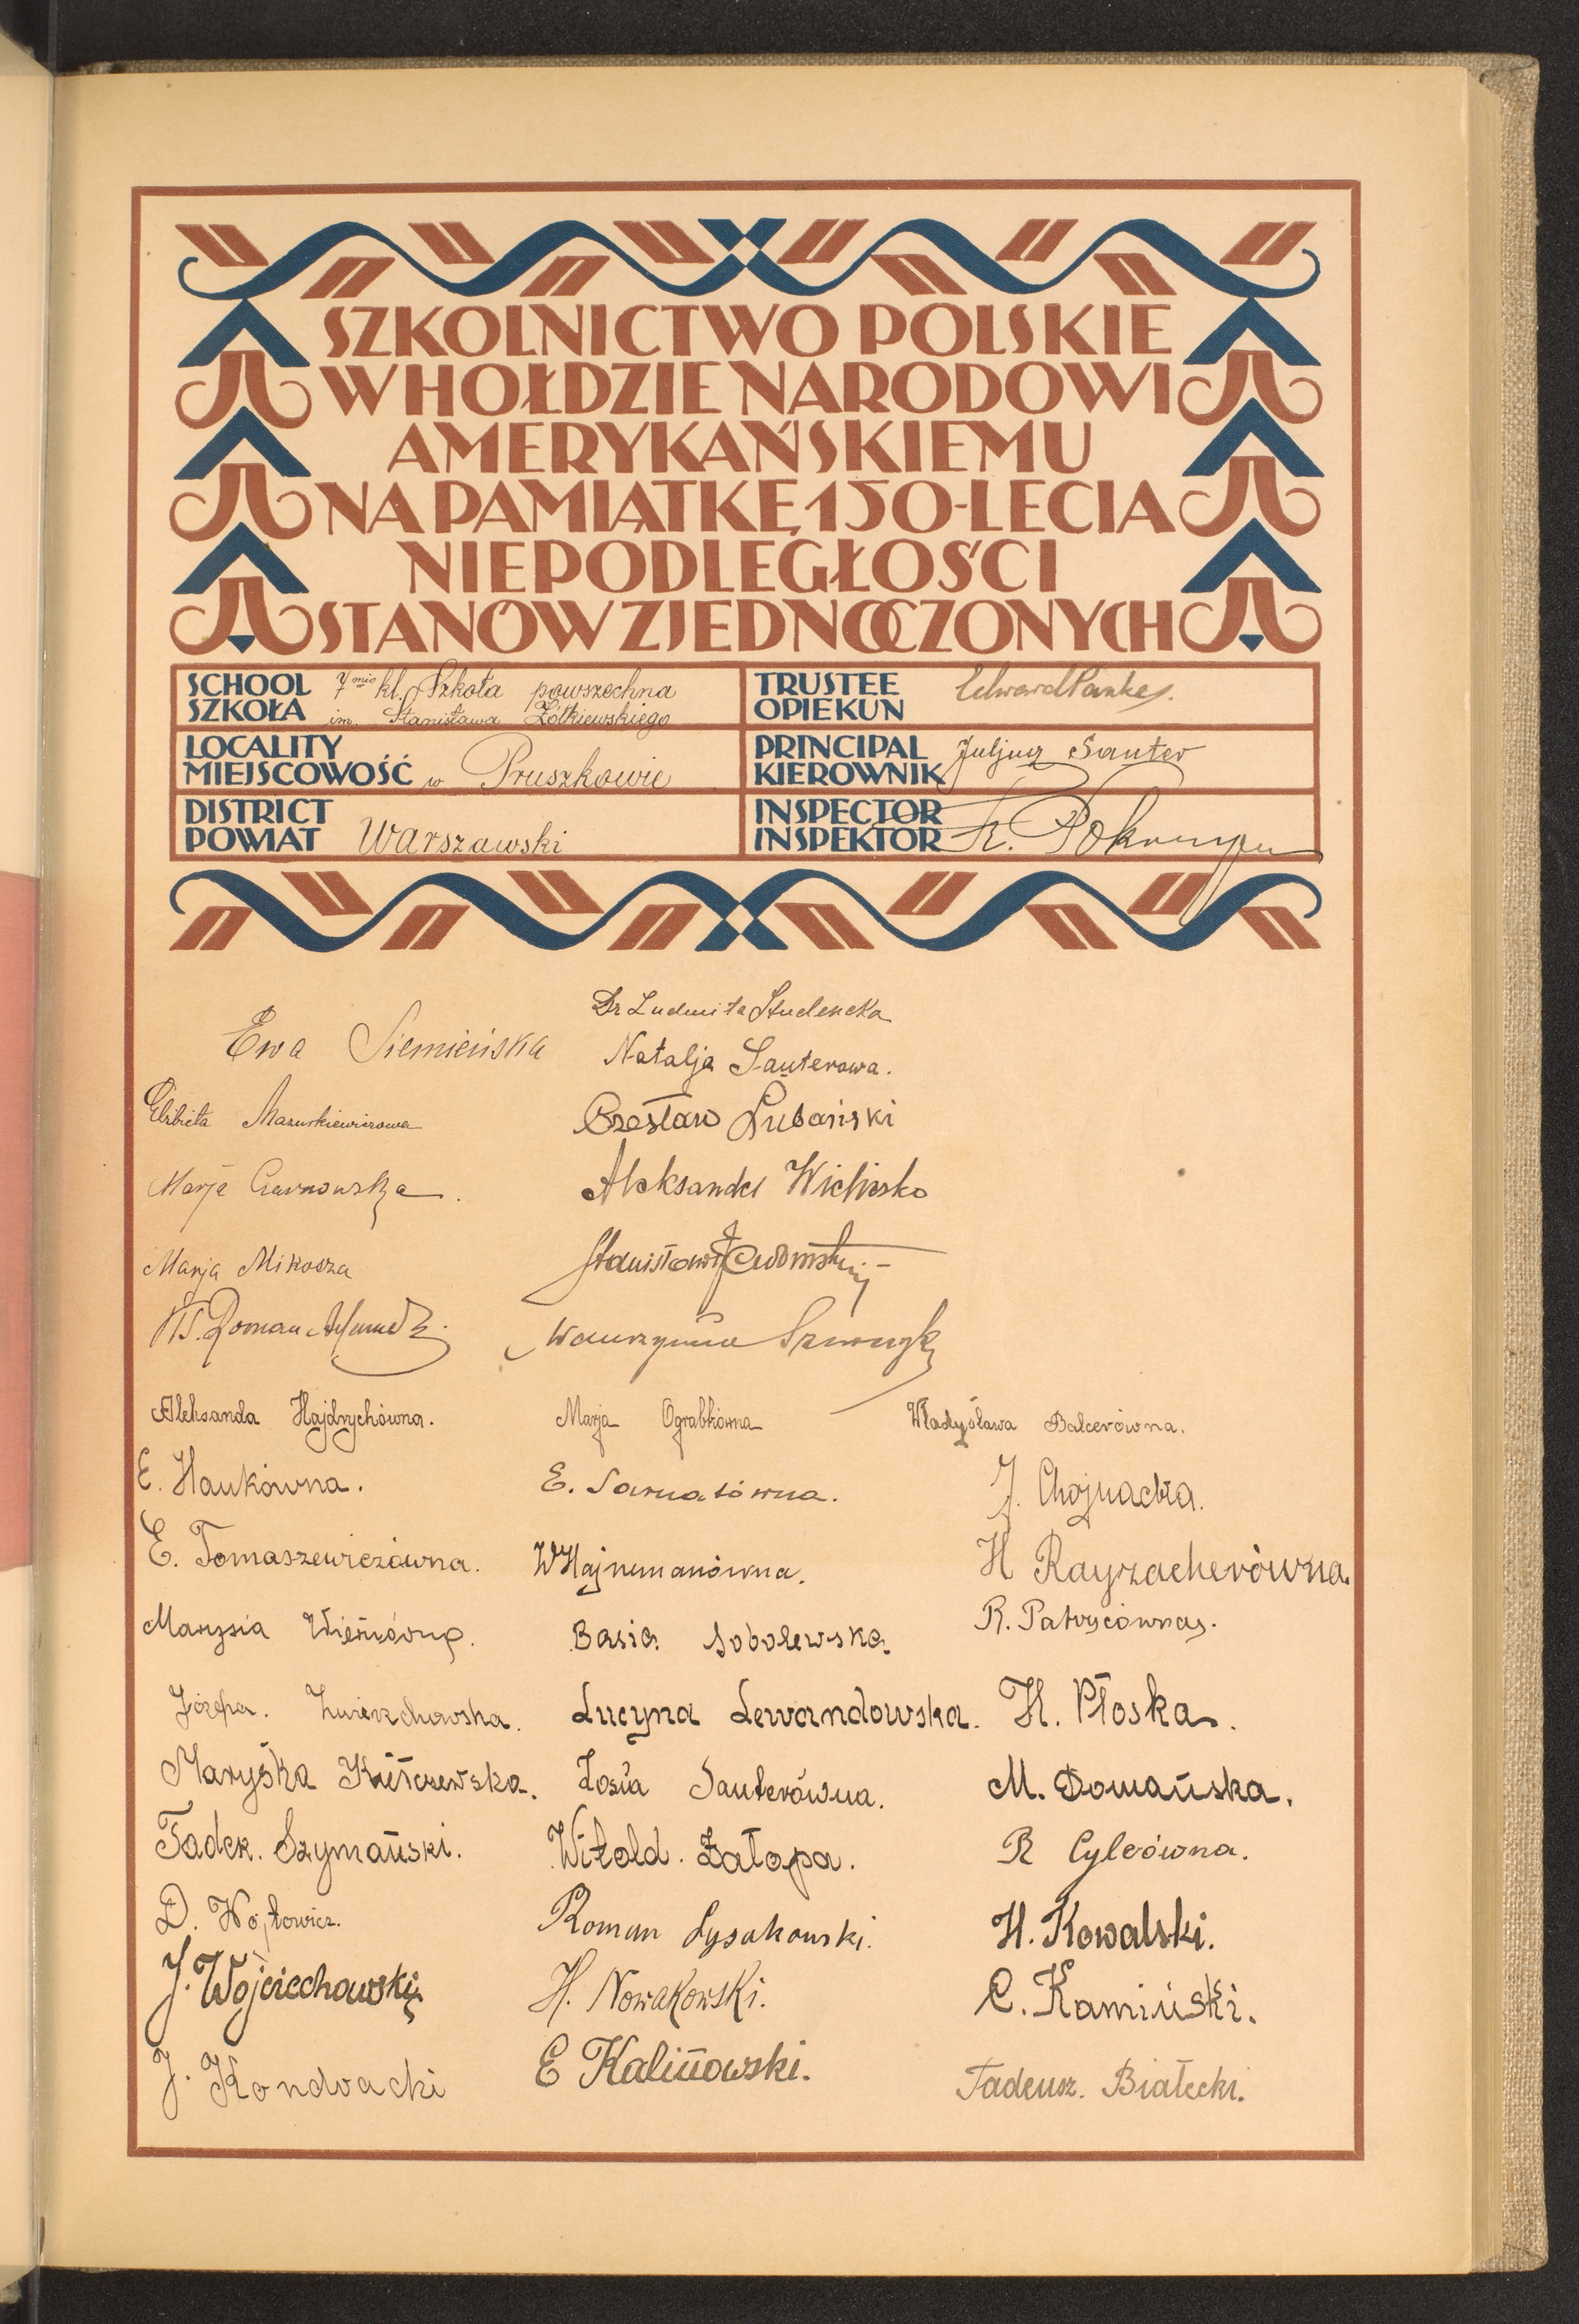 SZKOLNICTWO POLSKIE
W HOŁDZIE NARODOWI
AMERYKAŃSKIEMU
NA PAMIĄTKĘ 150-LECIA
NIEPODLEGŁOŚCI
STANÓW ZJEDNOCZONYCH
SCHOOL
SZKOŁA
7mio kl. Szkoła powszechna
im. Stanisława Żółkiewskiego
TRUSTEE
OPIEKUN
Edward
LOCALITY
MIEJSCOWOŚĆ w Pruszkowie
PRINCIPAL
KIEROWNIK
Juljusz Sauter
DISTRICT
POWIAT Warszawski
INSPECTOR
INSPEKTOR
Dr Ludmiła Studencka
Ewa Siemieńska
Natalja Sauterowa.
Elżbieta Mazurkiewiczowa
Czesław Lubański
Marja Czarnowska.
Aleksander
Marja Mikosza
Stanisław
Roman
Wawrzyniec
Aleksanda Hajdrychówna.
Marja Ograbkówna
Władysława Balcerówna.
E. Haukówna.
E. Sarnatówna.
J. Chojnacka.
E. Tomaszewiczówna.
W Hajnemanówna.
H Rayzacherówna.
Marysia
Basia Sobolewska
R. Patrycówna.
Józefa. Zwierzchowska.
Lucyna Lewandowska.
H. Płoska.
Maryśka Kuśczewska.
Zosia Sauterówna.
M. Domańska.
Tadek. Szymański.
Witold. Załopa.
R Cylcówna.
D. Wojtowicz.
Roman Łysakowski.
H. Kowalski.
J. Wojciechowski
H. Nowakowski.
C. Kamiński.
J. Kondracki
E Kalinowski.
Tadeusz. Białecki.